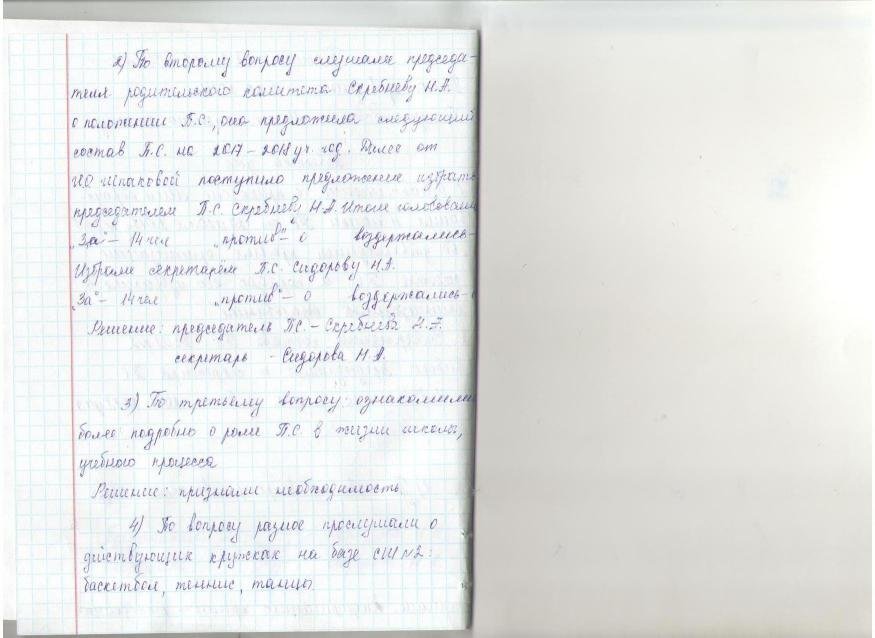 2) По второму вопросу слушали председа-
теля родительского комитета Скребневу Н.А.
о положении П.С., она предложила следующий
состав П.С. на 2017-2018 уч. год. Далее от
Шпаковой поступило предложение избрать
председателем П.С. Скребневу Н.А. Итоги голосовани
„За"- 14 чел „против"- 0 воздержались-
Избрали секретарём П.С. Сидорову Н.А.
„За"- 14 чел „против"- 0 воздержались-
Решение: председатель П.С. - Скребнева
секретарь - Сидорова Н.А.
3) По третьему вопросу: ознакомили
более подробно о роли П.С. в жизни школы,
учебного процесса
Решение: признали необходимость.
4) По вопросу разное прослушали о
действующих кружках на базе СШ №2:
баскетбол, теннис, танцы.